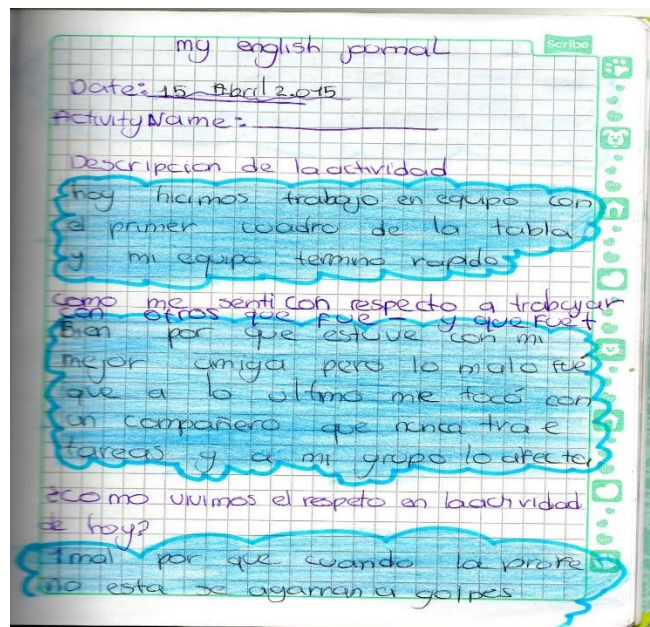 my english journal
Scribe
Date: 15 Abril 2.015
Activity Name:
Descripcion de la actividad
hoy hicimos trabajo en equipo con
el primer cuadro de la tabla
y mi equipo termino rapido
como me senti con respecto a trabajar
con otros que fue - y que fue +
Bien por que estuve con mi
mejor amiga pero lo malo fué
que a lo ultimo me tocó con
un compañero que nunca trae
tareas y a mi grupo lo afecta
¿como vivimos el respeto en la actividad
de hoy?
mal por que cuando la profe
no esta se agarran a golpes